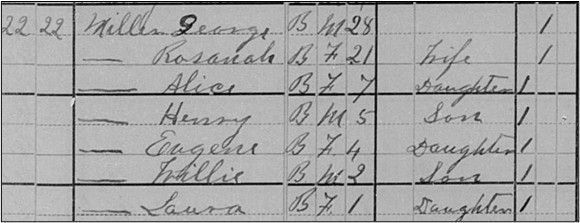 22 22 Miller George B M 28 1
— Rosanah B F 21 Wife 1
— Alice B F 7 Daughter 1
— Henry B M 5 Son 1
— Eugene B F 4 Daughter 1
— Willie B M 2 Son 1
— Laura B F 1 Daughter 1